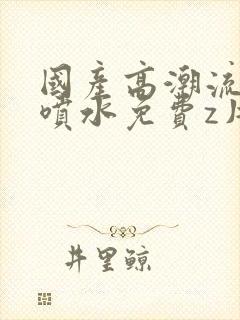 國產高潮流
噴水免費z片
井里鲸